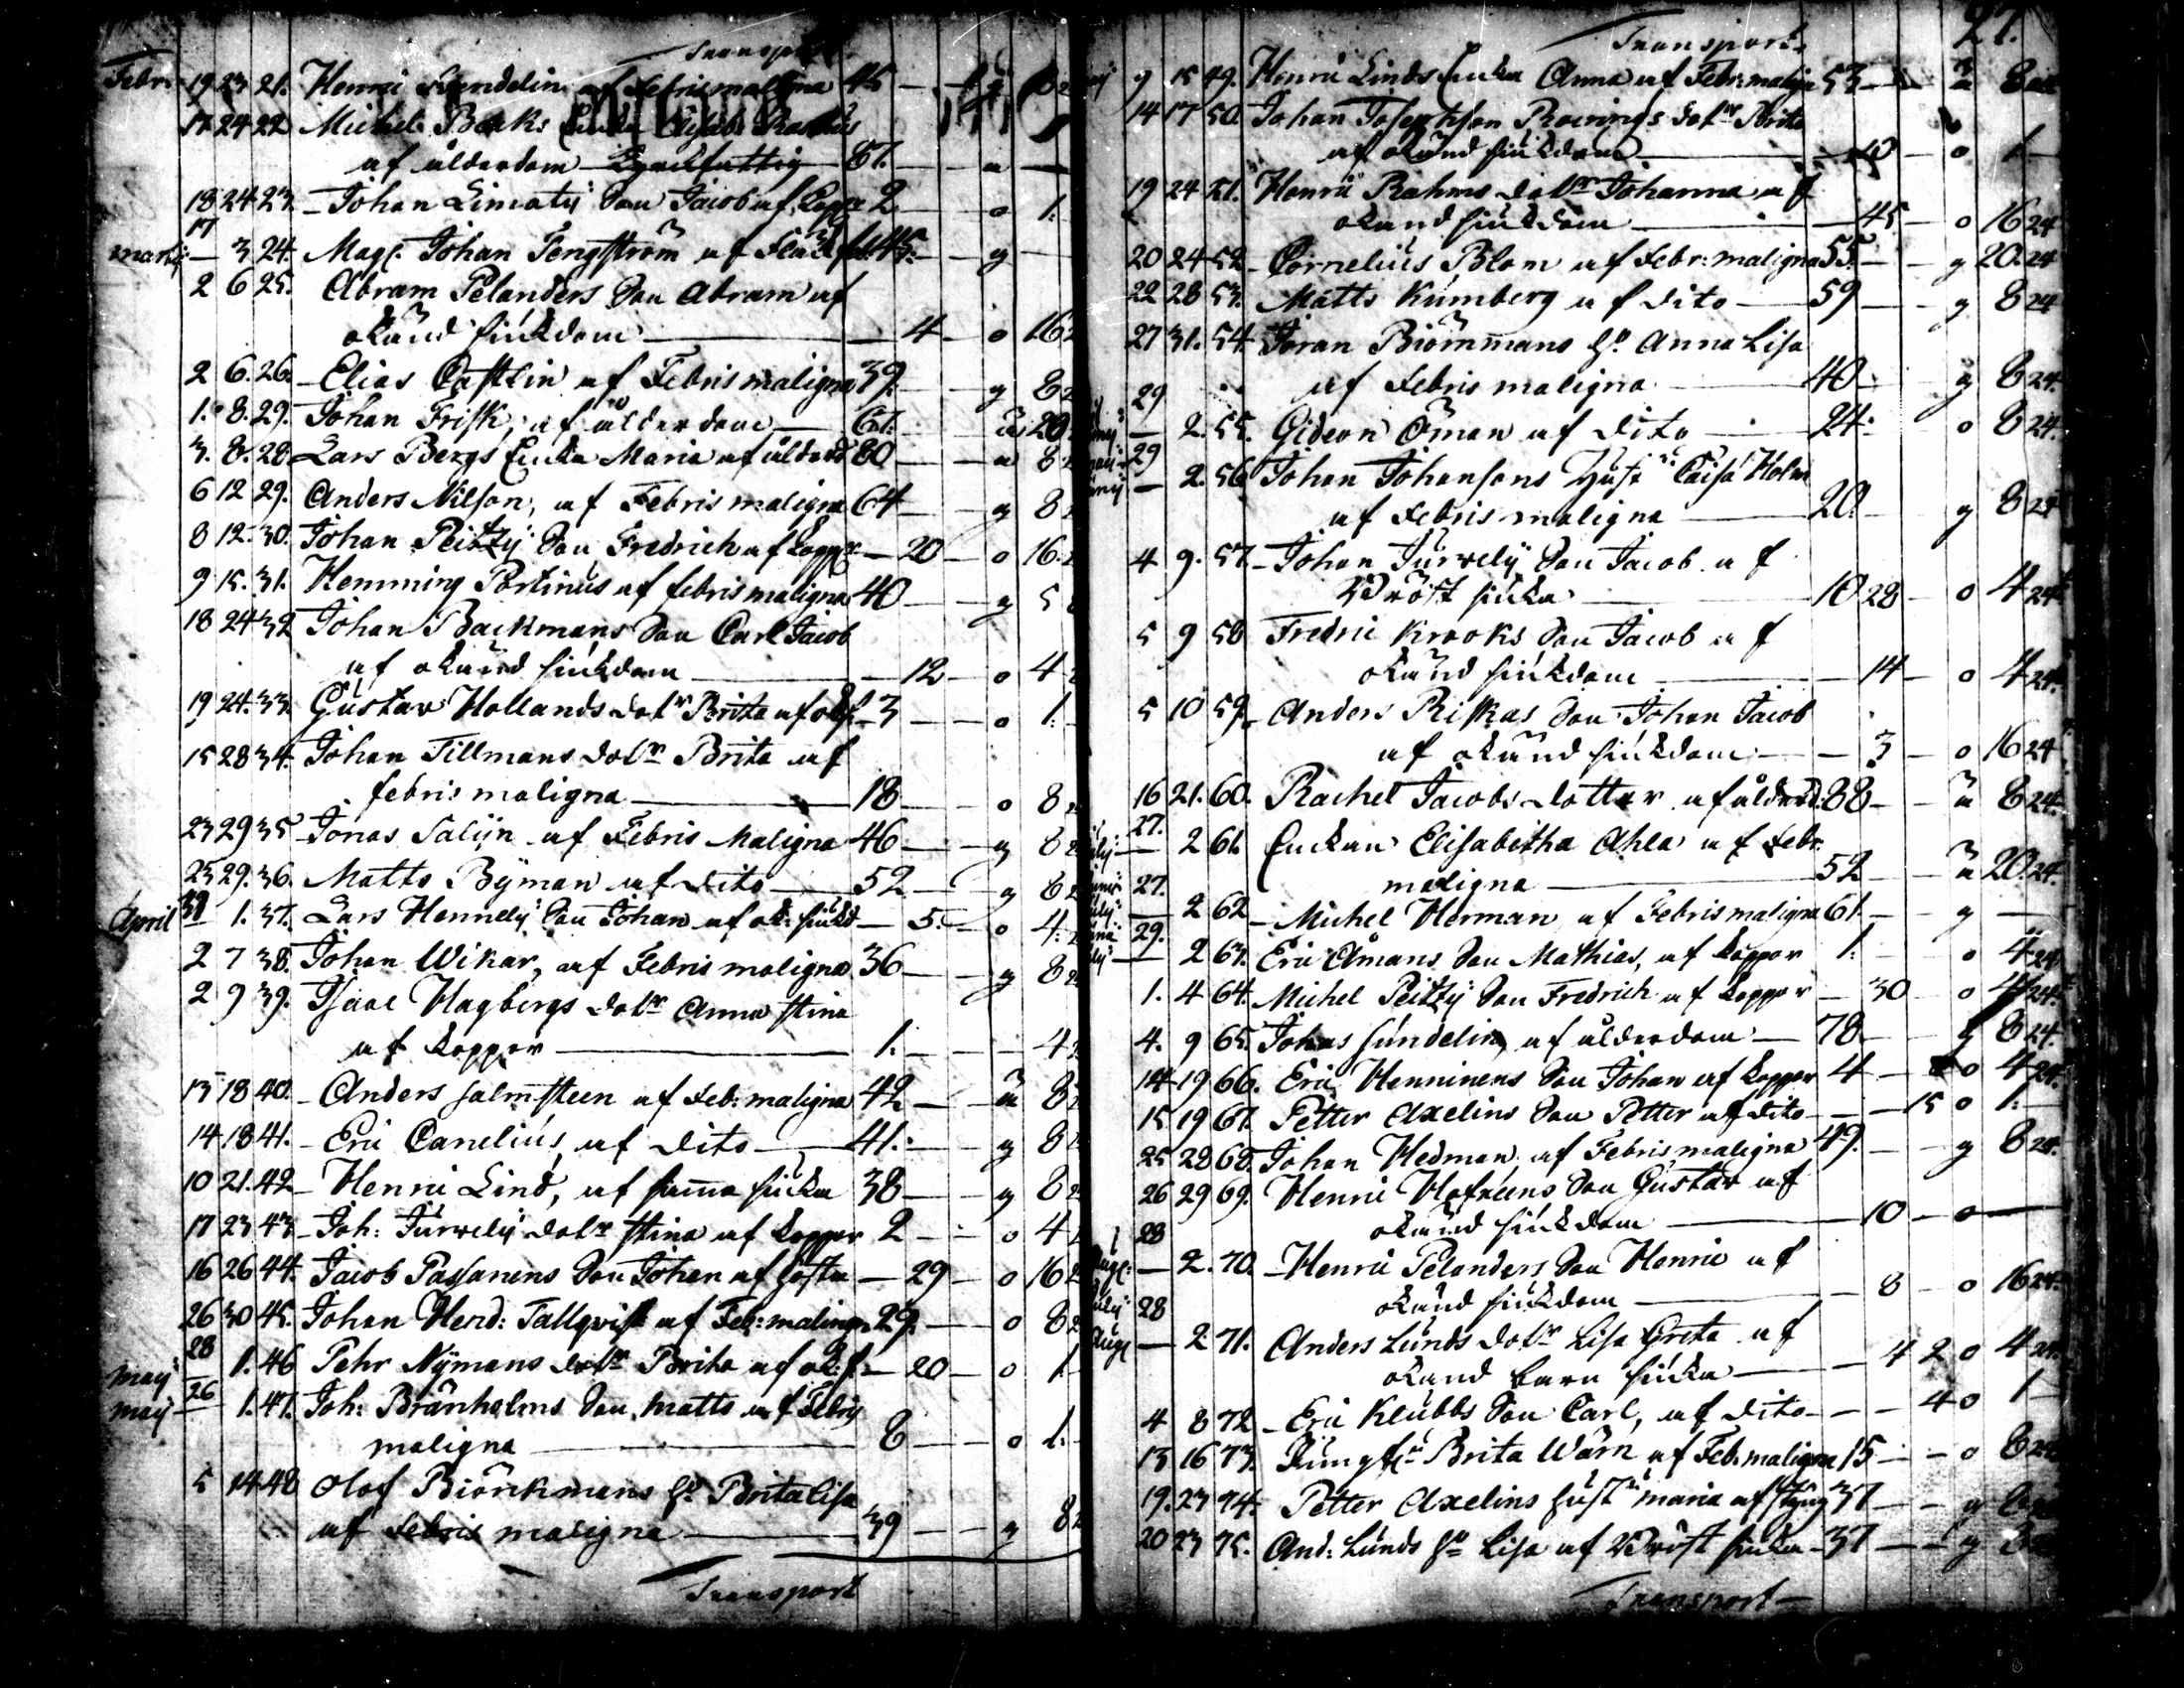 Transport
Febr: 19 23 21. Henric Sundelin af Febris maligna 45 —
17 24 22 Michel Backs Enka
af ålderdom 87. — ä —
18 24 23. Johan Limatij Son Jacob af Kopp: 2 — o 1:
17
Martij — 3 24. Mag: Johan Tengström af 45: — g
2 6 25. Abram Pelanders Son Abram af
okänd siukdom — 4 — o 16
2 6. 26. Elias Castlin af Febris maligna 39. — g 8
1. 8. 29. Johan Frisk, af ålderdom — 61. ä 20
3. 8. 28 Lars Bergs Enka Maria af ålderd 80 — ä 8
6 12 29. Anders Nilson, af Febris maligna 64 — g 8
8 12. 30. Johan Peitzij Son Fredrich af Kopp: — 20 — o 16.
9 15. 31. Hemming Portinus af febris maligna 40 — g 5
18 24 32 Johan Backmans Son Carl Jacob
af okänd siukdom — 12 — o 4
19 24. 33. Gustav Hollands dotr Brita af ok: s: 3 — o 1:
15 28 34. Johan Tillmans dotr Brita af
febris maligna — 18 — o 8
23 29 35 Jonas Salijn af Febris Maligna 46 — g 8
25 29. 36. Matts Byman af dito — 52 — g 8
April 1. 37. Lars Hennelij Son Johan af ok: siukd — 5. — o 4:
2 7 38. Johan Wikar, af Febris maligna 36 — g 8
2 9 39. Isaac Hagbergs dotr Anna Stina
af Koppor — 1. — 4
13 18 40. Anders Salmsteen af Feb: maligna 42 — ä 8
14 18 41. Eric Canelius, af dito — 41. — g 8
10 21. 42 Henric Lind, af samma siuka 38 — g 8
17 23 43 Joh: Jurvelij dotr Stina af Koppor 2 — o 4
16 26 44. Jacob Passanens Son Johan af hosta — 29 — o 16
26 30 45. Johan Hend: Tallqvist af Feb: maligna 29. — o 8
28
Maij 1. 46 Pehr Nymans dotr Brita af ok: s: — 20 — o 1
26
Maij — 1. 47. Joh: Bränholms Son Matts af Febris
maligna — 8 — o 1:
5 14 48 Olof Biörckmans H: Brita Lisa
af Febris maligna — 39 — g 8
Transport
27.
Transport
9 15 49. Henric Linds Enka Anna af Febr: maligna 53 — ä 8
14 17 50. Johan Josephson Roenings dotr Brita
af okänd siukdom — 10 — o 1
19 24 51. Henric Rahms dotr Johanna af
okänd siukdom — 45 — o 16 24
20 24 52. Cornelius Blom af Febr: maligna 55: — g 20. 24
22 28 53. Matts Kumberg af dito — 59 — g 8 24
27 31. 54. Jöran Biömmans H: Anna Lisa
af Febris maligna — 40 — g 8 24.
29
— 2. 55. Gideon Öman af dito — 24: o 8 24.
29
— 2. 56 Johan Johansons Hust: Caisa Holm
af Febris maligna — 20. g 8 24
4 9. 57. Johan Jurvelij Son Jacob af
Bröst siuka — 10 28 — o 4 24
5 9 58 Fredric Krooks Son Jacob af
okänd siukdom — 14 — o 4 24.
5 10 59. Anders Riskas Son Johan Jacob
af okänd siukdom — 3 — o 16 24
16 21. 60. Rachel Jacobs dotter af ålderd: 88 — ä 8 24.
27.
— 2 61. Enkan Elisabetha Ahla af Febr:
maligna — 52 ä 20. 24.
27.
— 2 62 Michel Herman af Febris maligna 61 — g —
29.
— 2 63. Eric Åmans Son Mathias, af Koppor 1. — o 4 24
1. 4 64. Michel Peitzij Son Fredrich af Koppor — 30 — o 4 24.
4. 9 65. Johas Sundelin, af ålderdom — 78 — g 8 24.
14 19 66. Eric Henninens Son Johan af Koppor 4 — o 4 24.
15 19 67. Petter Axelins Son Petter af dito — 15 o 1:
25 28 68. Johan Hedman, af Febris maligna 49. — g 8 24.
26 29 69. Henric Hofreens Son Gustav af
okänd siukdom — 10 — o —
28
Aug: — 2. 70. Henric Pelanders Son Henric af
okänd siukdom — 8 — o 16 24.
Julij 28
Aug: — 2 71. Anders Lunds dotr Lisa Greta af
okänd barn siuka — 4 2 o 4 24.
4 8 72 Eric Klubbs Son Carl, af dito — 4 o 1
13 16 73. Jungfr: Brita Wärn af Feb: maligna 15 — o 8 24
19. 23 74. Petter Axelins Hust: Maria af 37 — g
20 23 75. And: Lunds H: Lisa af Bröst siuka 37 — g
Transport